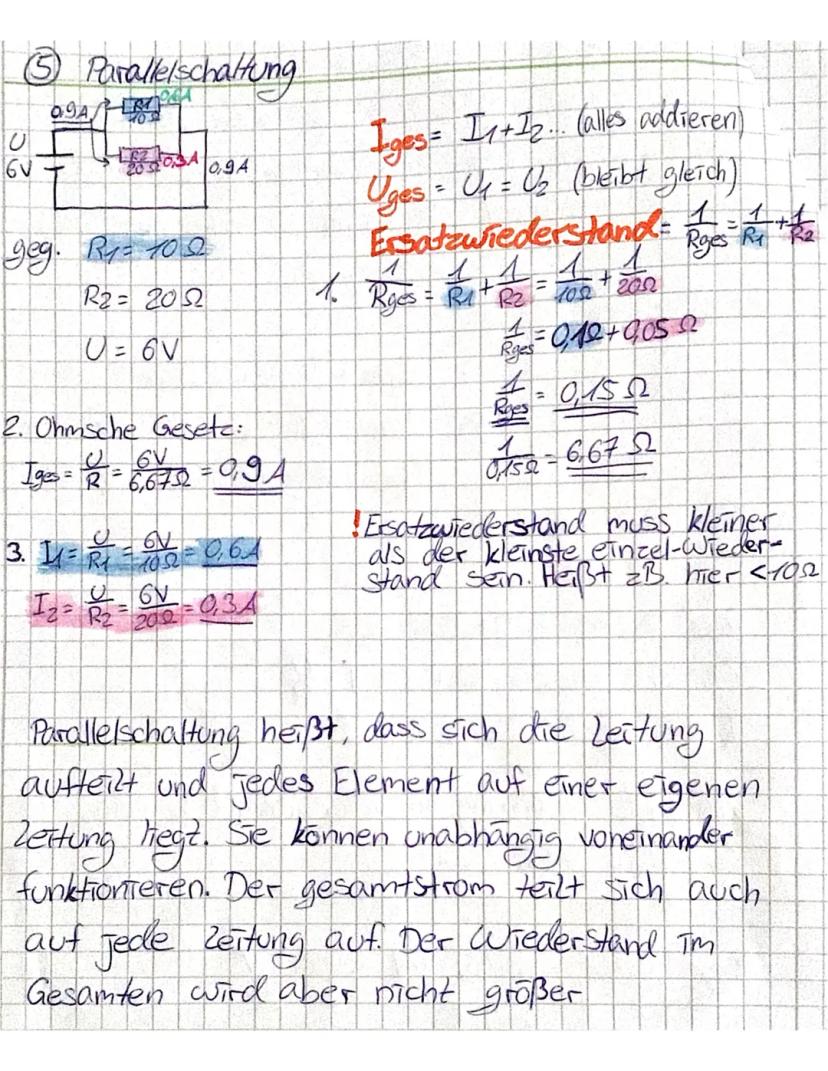 ⑤ Parallelschaltung
0,9A R1 10Ω 0,6A
U 6V R2 20Ω 0,3A 0,9A
Iges = I1+I2... (alles addieren)
Uges = U1 = U2 (bleibt gleich)
Ersatzwiederstand = 1/Rges = 1/R1 + 1/R2
geg. R1 = 10 Ω
R2 = 20 Ω
U = 6V
1. 1/Rges = 1/R1 + 1/R2 = 1/10Ω + 1/20Ω
1/Rges = 0,1Ω + 0,05 Ω
1/Rges = 0,15 Ω
1/0,15Ω = 6,67 Ω
2. Ohmsche Gesetz:
Iges = U/R = 6V/6,67Ω = 0,9 A
3. I1 = U/R1 = 6V/10Ω = 0,6A
I2 = U/R2 = 6V/20Ω = 0,3A
! Ersatzwiederstand muss kleiner
als der kleinste einzel-Wieder-
stand sein. Heißt zB. hier <10Ω
Parallelschaltung heißt, dass sich die Leitung
aufteilt und jedes Element auf einer eigenen
Leitung liegt. Sie können unabhängig voneinander
funktionieren. Der gesamtstrom teilt sich auch
auf jede Leitung auf. Der Wiederstand im
Gesamten wird aber nicht größer